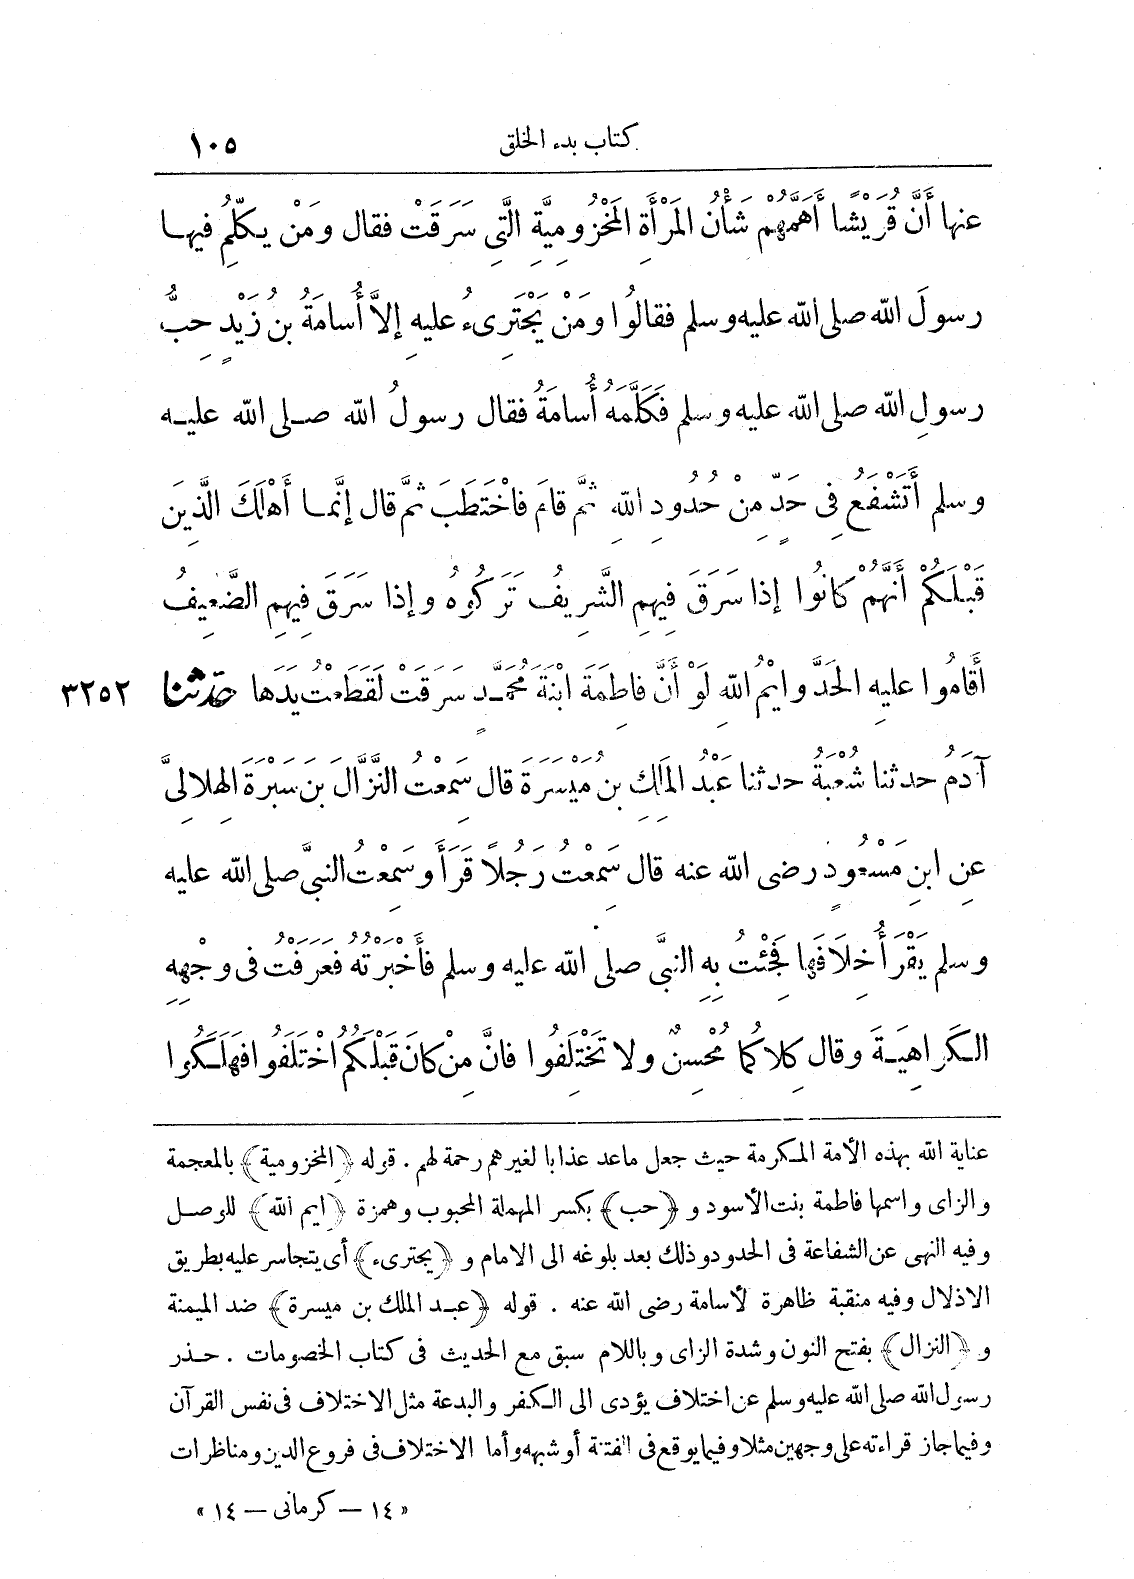 كتاب بدء الخلق ١٠٥
عنها أَنَّ قُرَيْشًا أَهَمَّهُمْ شَأْنُ المَرْأَةِ المَخْزُومِيَّةِ الَّتِى سَرَقَتْ فقال ومَنْ يكلِّمُ فيها
رسولَ الله صلى الله عليه وسلم فقالُوا ومَنْ يَجْتَرِىءُ عليهِ إلاَّ أُسامَةُ بنُ زَيْدٍ حِبُّ
رسولِ الله صلى الله عليه وسلم فَكَلَّمَهُ أُسامَةُ فقال رسولُ الله صلى الله عليه
وسلم أَتَشْفَعُ فِى حَدٍّ مِنْ حُدُودِ اللهِ ثمَّ قامَ فاخْتَطَبَ ثمَّ قال إنَّما أَهْلَكَ الَّذِينَ
قَبْلَكُمْ أَنَّهُمْ كانُوا إذا سَرَقَ فِيهِمِ الشَّرِيفُ تَرَكُوهُ وإذا سَرَقَ فِيهِمِ الضَّعِيفُ
أَقامُوا عليهِ الحَدَّ وايْمُ اللهِ لَوْ أَنَّ فاطِمَةَ ابْنَةَ مُحَمَّدٍ سَرَقَتْ لَقَطَعْتُ يَدَها حدثنا ٣٢٥٢
آدَمُ حدثنا شُعْبَةُ حدثنا عَبْدُ المَلِكِ بنُ مَيْسَرَةَ قال سَمِعْتُ النَّزَّالَ بنَ سَبْرَةَ الهِلالِىَّ
عنِ ابنِ مَسْعُودٍ رضى الله عنه قال سَمِعْتُ رَجُلاً قَرَأَ وسَمِعْتُ النبىَّ صلى الله عليه
وسلم يَقْرَأُ خِلاَفَها فَجِئْتُ بِهِ النبىَّ صلى الله عليه وسلم فأَخْبَرْتُهُ فَعَرَفْتُ فى وجْهِهِ
الكَرَاهِيَةَ وقال كِلاكُما مُحْسِنٌ ولا تَخْتَلِفُوا فانَّ مِنْ كانَ قَبْلَكُمُ اخْتَلَفُوا فَهَلَكُوا
عناية الله بهذه الأمة المكرمة حيث جعل ماعد عذابا لغيرهم رحمة لهم . قوله ﴿المخزومية﴾ بالمعجمة
والزاى واسمها فاطمة بنت الأسود و ﴿حب﴾ بكسر المهملة المحبوب وهمزة ﴿ايم الله﴾ للوصل
وفيه النهى عن الشفاعة فى الحدود وذلك بعد بلوغه الى الامام و ﴿يجترىء﴾ أى يتجاسر عليه بطريق
الاذلال وفيه منقبة ظاهرة لأسامة رضى الله عنه . قوله ﴿عبد الملك بن ميسرة﴾ ضد الميمنة
و ﴿النزال﴾ بفتح النون وشدة الزاى وباللام سبق مع الحديث فى كتاب الخصومات . حذر
رسول الله صلى الله عليه وسلم عن اختلاف يؤدى الى الكفر والبدعة مثل الاختلاف فى نفس القرآن
وفيما جاز قراءته على وجهين مثلا وفيما يوقع فى الفتنة أو شبهه وأما الاختلاف فى فروع الدين ومناظرات
« ١٤ — كرمانى — ١٤ »